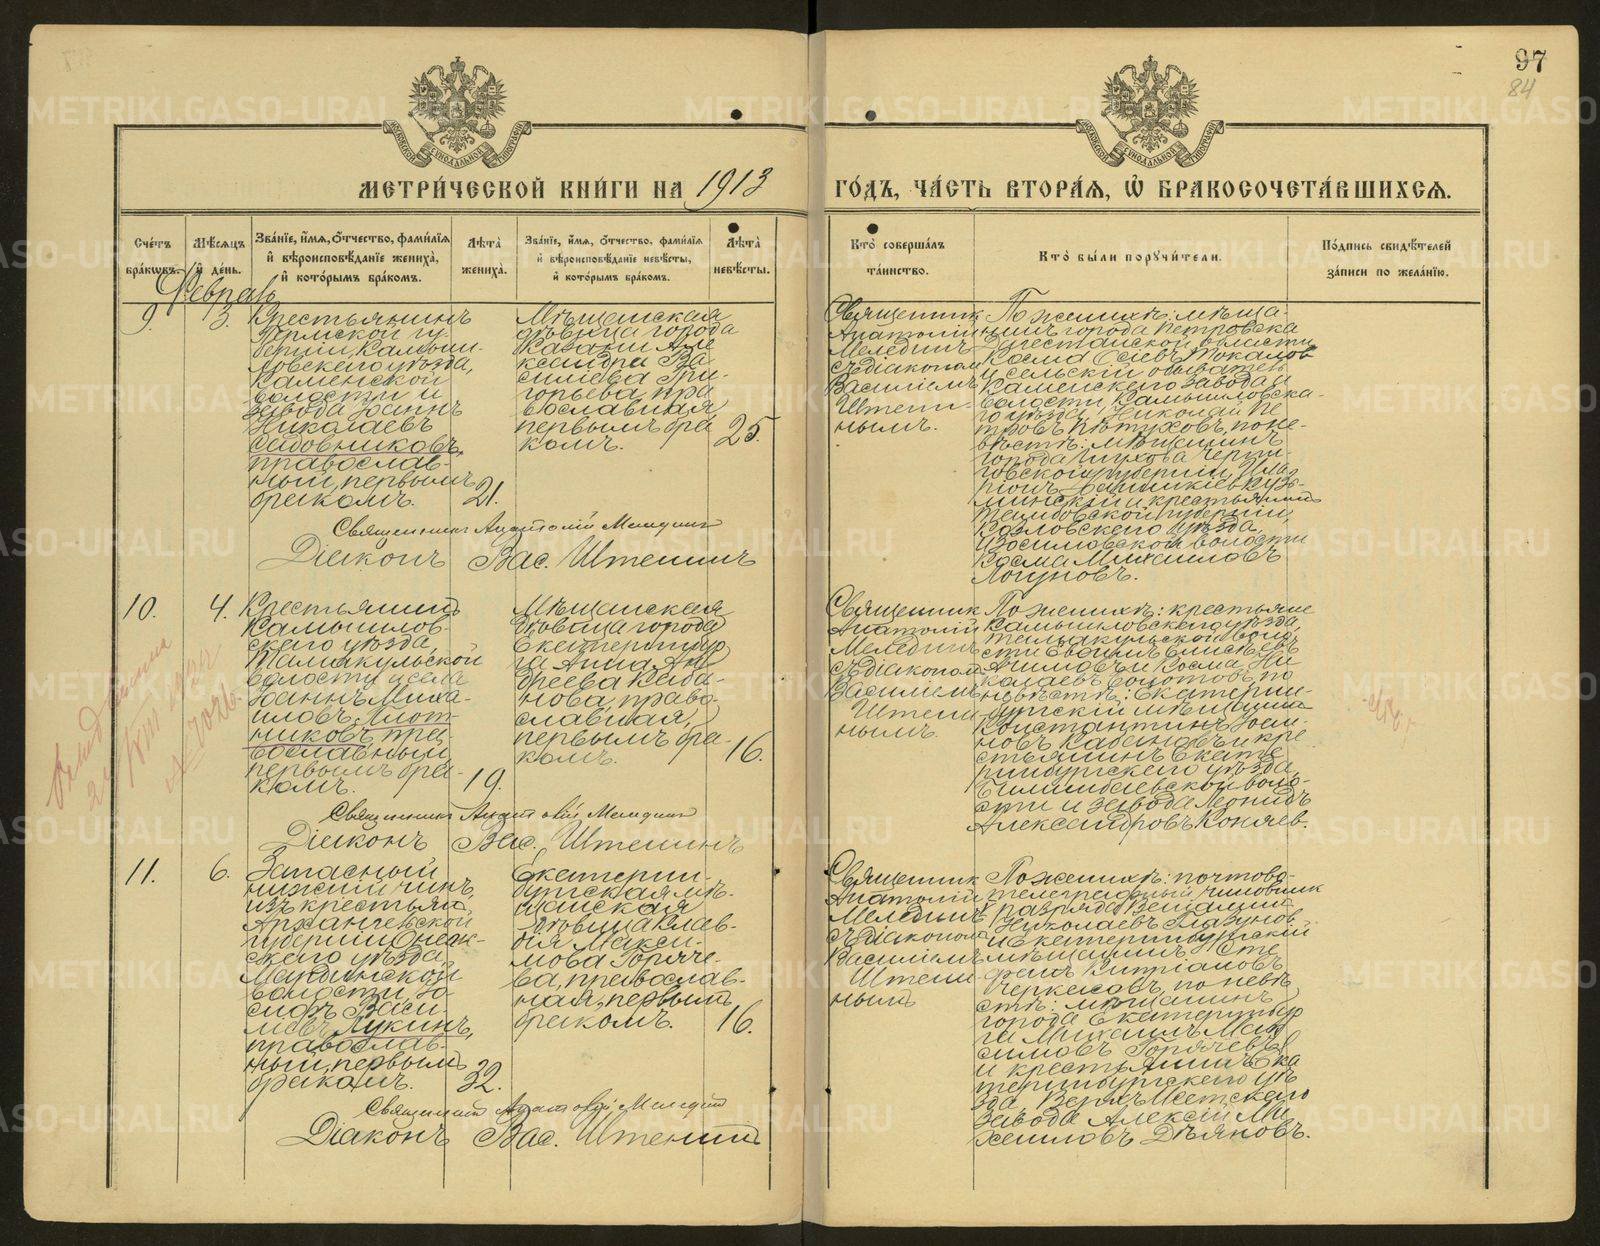 97
84
МОСКОВСКОЙ СѴНОДАЛЬНОЙ ТИПОГРАФІИ
МОСКОВСКОЙ СѴНОДАЛЬНОЙ ТИПОГРАФІИ
МЕТРИ́ЧЕСКОЙ КНИ́ГИ НА 1913 ГО́ДЪ, ЧА́СТЬ ВТОРА́Ѧ, Ѽ БРАКОСОЧЕТА́ВШИХСѦ.
Сче́тъ бра́кѡвъ.
Мѣ́сѧцъ и҆ де́нь.
Зва́нїе, и҆́мѧ, ѻ҆́тчество, фами́лїѧ и҆ вѣроисповѣ́данїе жениха̀, и҆ кото́рымъ бра́комъ.
Лѣта̀ жениха̀.
Зва́нїе, и҆́мѧ, ѻ҆́тчество, фами́лїѧ и҆ вѣроисповѣ́данїе невѣ́сты, и҆ кото́рымъ бра́комъ.
Лѣта̀ невѣ́сты.
Кто̀ соверша́лъ та́инство.
Кто̀ бы́ли порꙋчи́тели.
По́дпись свидѣ́телей за́писи по жела́нїю.
Февраль
9.
3.
Крестьянинъ
Пермской гу
берніи, Камыш-
ловскаго уѣзда,
Каменской
волости и
завода Іоаннъ
Николаевъ
Садовниковъ,
православ-
ный, первымъ
бракомъ.
21.
Мѣщанская
дѣвица города
Казани Але
ксандра Ва
силіева Гри-
горьева, пра
вославная,
первымъ бра
комъ.
25.
Священникъ
Анатолій
Мелединъ
съ діакономъ
Василіемъ
Штени-
нымъ.
По женихѣ: мѣща-
нинъ города Петровска
Дагестанской области
Косма
и сельскій обыватель
Каменскаго завода и
волости, Камышловска-
го уѣзда, Николай Пе
тровъ Пѣтуховъ, по не-
вѣстѣ: мѣщанинъ
города Глухова Черни-
говской губерніи,
и крестьянинъ
Тамбовской губерніи,
Козловскаго уѣзда,
Изосимовской волости
Косма Михаиловъ
Логуновъ.
Священникъ Анатолій Мелединъ
Діаконъ Вас. Штенинъ
10.
4.
Крестьянинъ
Камышлов-
скаго уѣзда,
Тамакульской
волости и села
Іоаннъ Миха-
иловъ Плот-
никовъ, пра-
вославный,
первымъ бра-
комъ.
19.
Мѣщанская
дѣвица города
Екатеринбур
га Анна Ан
дреева Каба-
нова, право-
славная,
первымъ бра-
комъ.
16.
Священникъ
Анатолій
Мелединъ
съ діакономъ
Василіемъ
Штени-
нымъ.
По женихѣ: крестьяне
Камышловскаго уѣзда,
Тамакульской воло-
сти
и Косма Ни
колаевъ по
невѣстѣ: Екатерин-
бургскій мѣщанинъ
Константинъ Іоан-
новъ Кабановъ и кре
стьянинъ Екате
ринбургскаго уѣзда,
Билимбаевской воло-
сти и завода Леонидъ
Александровъ Коняев.
Священникъ Анатолій Мелединъ
Діаконъ Вас. Штенинъ
11.
6.
Запасный
нижній чинъ
изъ крестьянъ
Архангельской
губерніи Онеж-
скаго уѣзда,
Мардинской
волости, Іо-
сифъ Васи-
льевъ Лукинъ,
православ-
ный, первымъ
бракомъ.
32.
Екатерин-
бургская мѣ-
щанская
дѣвица Клав-
дія Макси-
мова Горяче-
ва, православ-
ная, первымъ
бракомъ.
16.
Священникъ
Анатолій
Мелединъ
съ діакономъ
Василіемъ
Штени-
нымъ
По женихѣ: почтово-
телеграфный чиновникъ
разряда Веніаминъ
Николаевъ Глазунов
и Екатеринбургскій
мѣщанинъ Сте
фанъ Кипріановъ
Черкасовъ, по невѣ
стѣ: мѣщанинъ
города Екатеринбур
га Михаилъ Мак
симовъ Горячевъ
и крестьянинъ Ека
теринбургскаго уѣ
зда, Верхъ-Исетскаго
завода Алексій Ми
хаиловъ Дѣяновъ.
Священникъ Анатолій Мелединъ
Діаконъ Вас. Штенинъ
METRIKI.GASO-URAL.RU